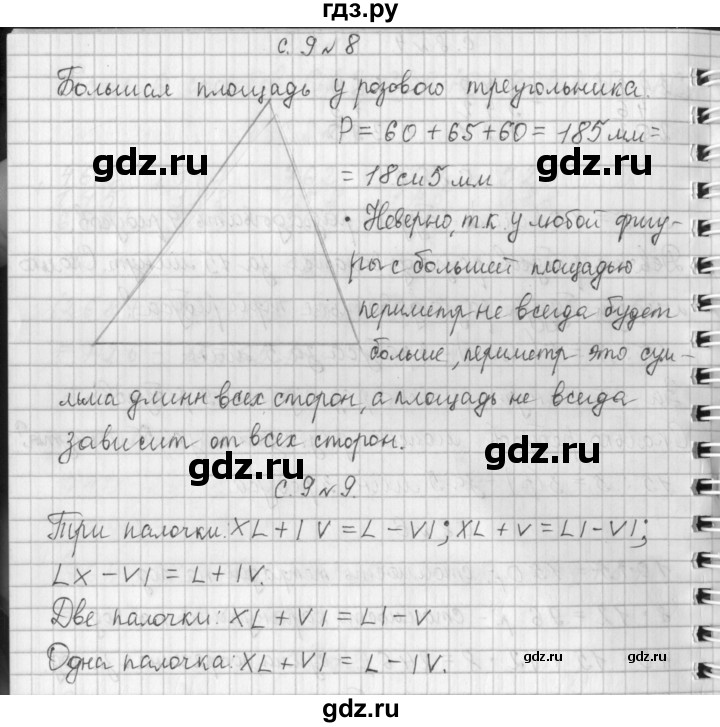 гдз.ру
с. 9 № 8
Большая площадь у розового треугольника.
P = 60 + 65 + 60 = 185 мм =
= 18 см 5 мм
• Неверно, т.к. у любой фигу-
ры с большей площадью
периметр не всегда будет
больше, периметр это сум-
льма длинн всех сторон, а площадь не всегда
зависит от всех сторон.
с. 9 № 9.
Три палочки: XL + IV = L - VI; XL + V = LI - VI;
LX - VI = L + IV.
Две палочки: XL + VI = LI - V
Одна палочка: XL + VI = L - IV.
gdz.ru
gdz.ru
gdz.ru
gdz.ru
gdz.ru
gdz.ru
gdz.ru
gdz.ru